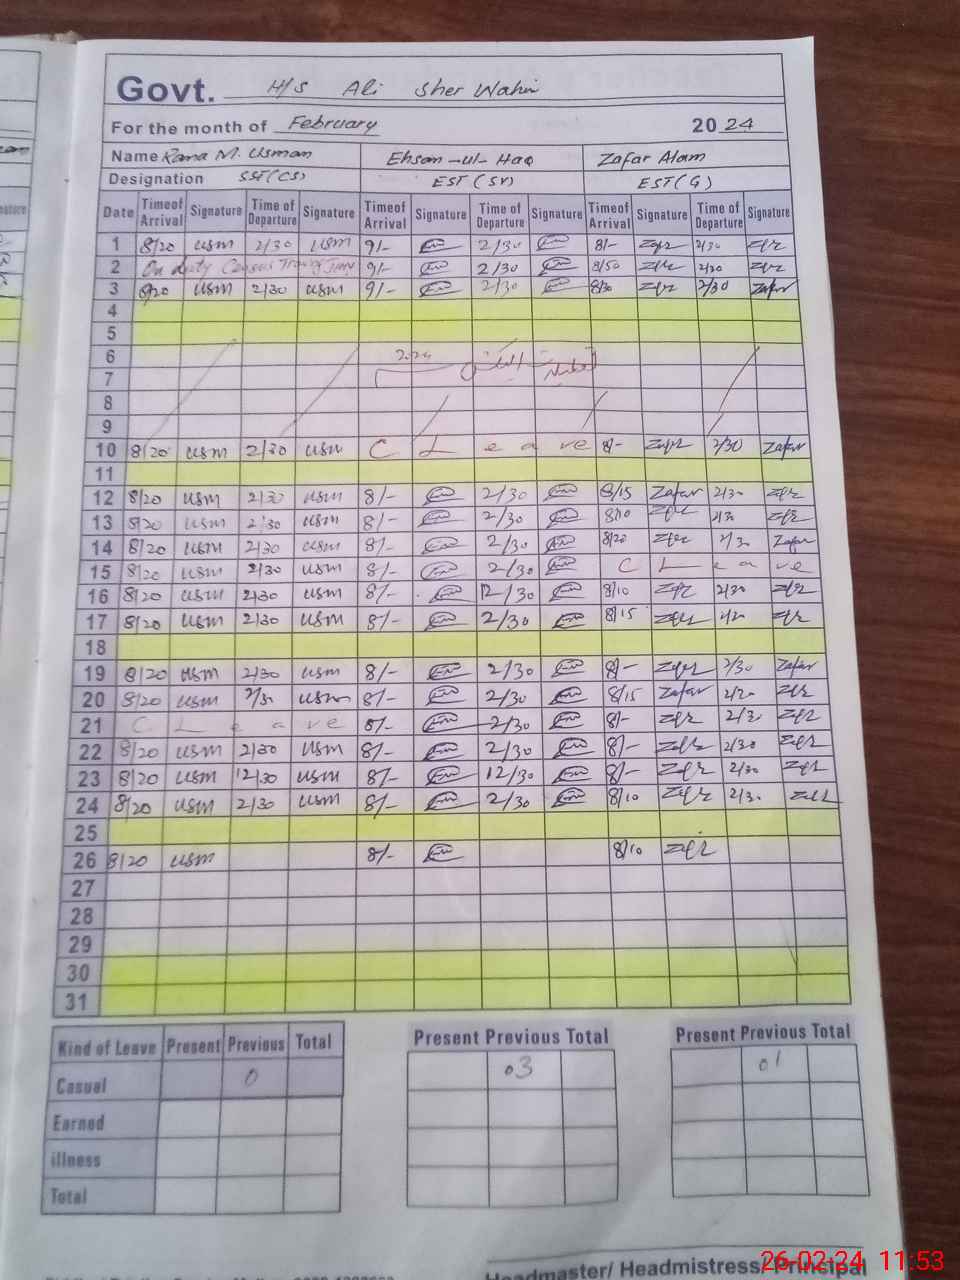 Govt. H/S Ali Sher Wahin
For the month of February 2024
Name Rana M. Usman Ehsan-ul-Haq Zafar Alam
Designation SST(CS) EST(SV) EST(G)
Date Time of Arrival Signature Time of Departure Signature Time of Arrival Signature Time of Departure Signature Time of Arrival Signature Time of Departure Signature
1 8/20 usm 2/30 usm 9/- 2/30 8/- 2/30
2 On duty Census Training 9/- 2/30 8/50 2/30
3 8/20 usm 2/30 usm 9/- 2/30 8/30 2/30 Zafar
4
5
6 2024
7
8
9
10 8/20 usm 2/30 usm C Leave 8/- 2/30 Zafar
11
12 8/20 usm 2/30 usm 8/- 2/30 8/15 Zafar 2/30
13 8/20 usm 2/30 usm 8/- 2/30 8/10 2/30
14 8/20 usm 2/30 usm 8/- 2/30 8/20 2/30 Zafar
15 8/20 usm 2/30 usm 8/- 2/30 C Leave
16 8/20 usm 2/30 usm 8/- 12/30 8/10 2/30
17 8/20 usm 2/30 usm 8/- 2/30 8/15
18
19 8/20 usm 2/30 usm 8/- 2/30 8/- 2/30 Zafar
20 8/20 usm 2/30 usm 8/- 2/30 8/15 Zafar
21 C Leave 8/- 2/30 8/- 2/30
22 8/20 usm 2/30 usm 8/- 2/30 8/- 2/30
23 8/20 usm 12/30 usm 8/- 12/30 8/- 2/30
24 8/20 usm 2/30 usm 8/- 2/30 8/10 2/30
25
26 8/20 usm 8/- 8/10
27
28
29
30
31
Kind of Leave Present Previous Total Present Previous Total Present Previous Total
Casual 0 03 01
Earned
illness
Total
Headmaster/ Headmistress/ Principal
26-02-24 11:53